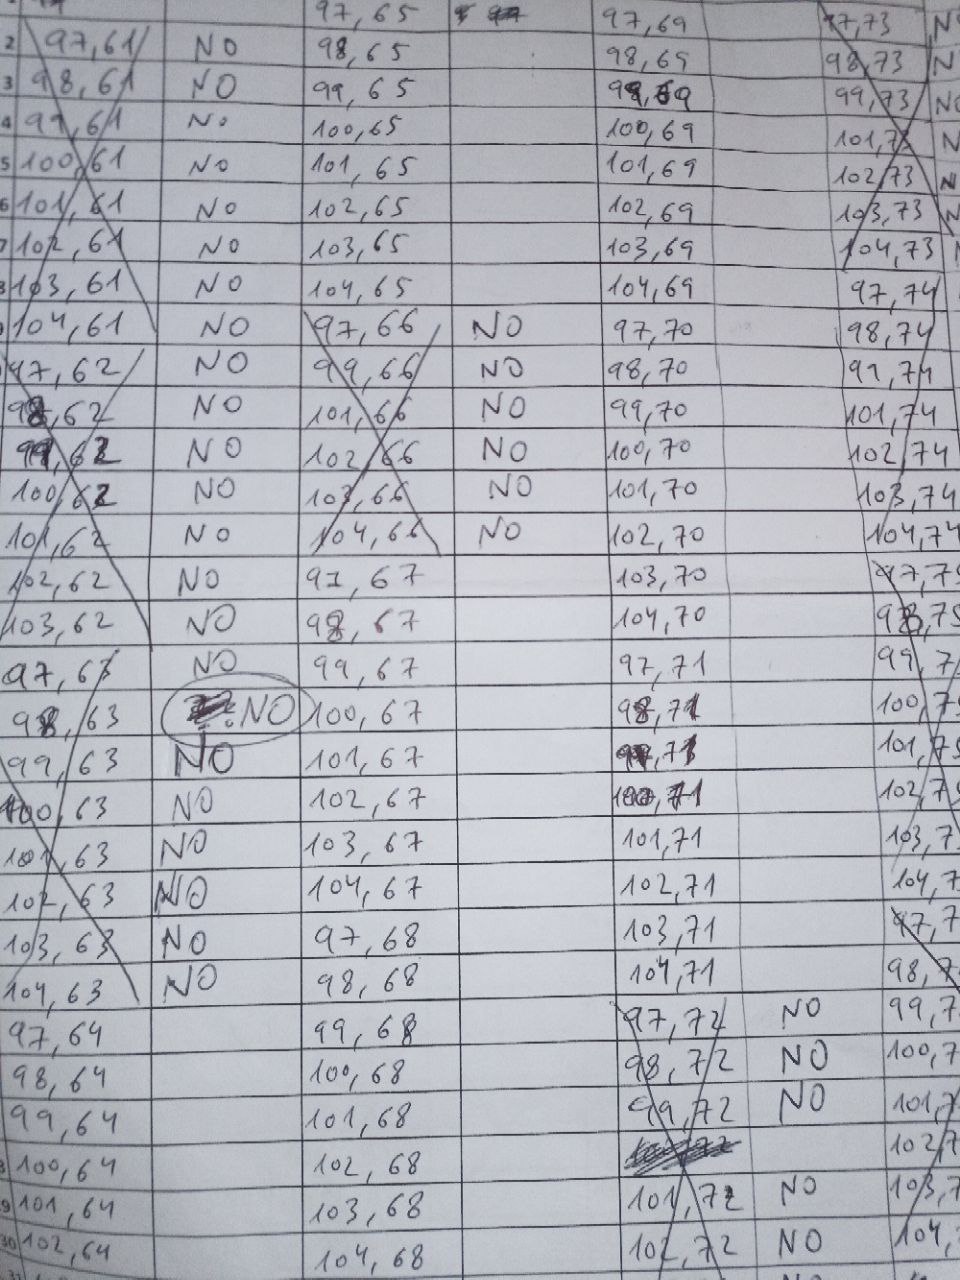 97,65 97,69 97,73 N
2 97,61 NO 98,65 98,69 98,73 N
3 98,61 NO 99,65 99,69 99,73 NO
4 99,61 NO 100,65 100,69 101,73 N
5 100,61 NO 101,65 101,69 102,73 N
6 101,61 NO 102,65 102,69 103,73 N
7 102,61 NO 103,65 103,69 104,73
8 103,61 NO 104,65 104,69 97,74
104,61 NO 97,66 NO 97,70 98,74
97,62 NO 99,66 NO 98,70 99,74
98,62 NO 101,66 NO 99,70 101,74
99,62 NO 102,66 NO 100,70 102,74
100,62 NO 103,66 NO 101,70 103,74
101,62 NO 104,66 NO 102,70 104,74
102,62 NO 97,67 103,70 97,75
103,62 NO 98,67 104,70 98,75
97,63 NO 99,67 97,71 99,7
98,63 NO 100,67 98,71 100,75
99,63 NO 101,67 99,71 101,75
100,63 NO 102,67 100,71 102,75
101,63 NO 103,67 101,71 103,75
102,63 NO 104,67 102,71 104,7
103,63 NO 97,68 103,71 97,7
104,63 NO 98,68 104,71 98,7
97,64 99,68 97,72 NO 99,7
98,64 100,68 98,72 NO 100,7
99,64 101,68 99,72 NO 101,7
100,64 102,68 102,7
29 101,64 103,68 101,72 NO 103,7
30 102,64 104,68 102,72 NO 104,